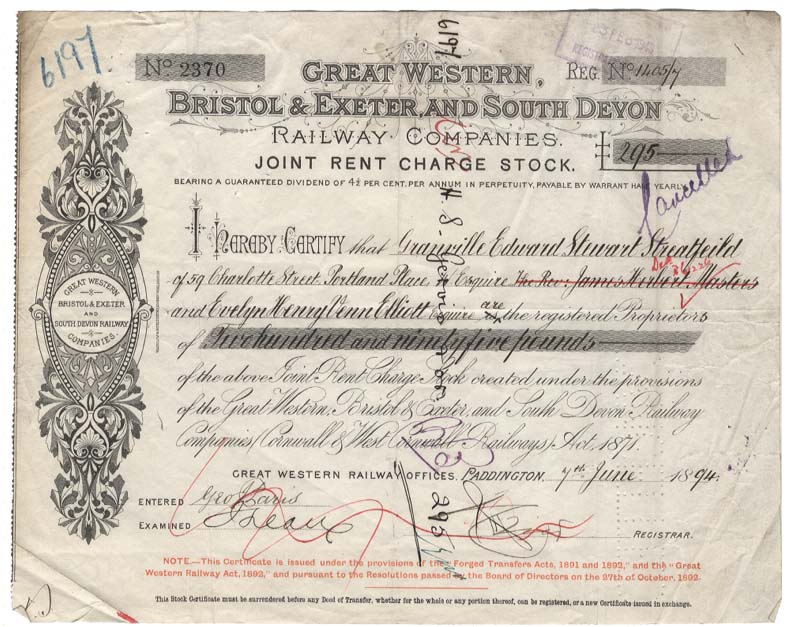 6197
6197
No 2370
GREAT WESTERN,
REG. No 1405/7
BRISTOL & EXETER, AND SOUTH DEVON
RAILWAY COMPANIES.
JOINT RENT CHARGE STOCK.
£295
BEARING A GUARANTEED DIVIDEND OF 4½ PER CENT. PER ANNUM IN PERPETUITY, PAYABLE BY WARRANT HALF YEARLY.
Cancelled
I HEREBY CERTIFY that Granville Edward Stewart Streatfeild
of 59 Charlotte Street, Portland Place, Esquire the Rev. James Herbert Masters
and Evelyn Henry Venn Elliott Esquire are the registered Proprietors
of Two hundred and ninety five pounds
of the above Joint Rent Charge Stock created under the provisions
of the Great Western, Bristol & Exeter, and South Devon Railway
Companies (Cornwall & West Cornwall Railways) Act, 1871.
GREAT WESTERN RAILWAY OFFICES, PADDINGTON, 7th June 1894.
ENTERED Geo Davis
EXAMINED
REGISTRAR.
295
GREAT WESTERN
BRISTOL & EXETER
AND
SOUTH DEVON RAILWAY
COMPANIES.
NOTE.—This Certificate is issued under the provisions of the "Forged Transfers Acts, 1891 and 1892," and the "Great
Western Railway Act, 1892," and pursuant to the Resolutions passed by the Board of Directors on the 27th of October, 1892.
This Stock Certificate must be surrendered before any Deed of Transfer, whether for the whole or any portion thereof, can be registered, or a new Certificate issued in exchange.